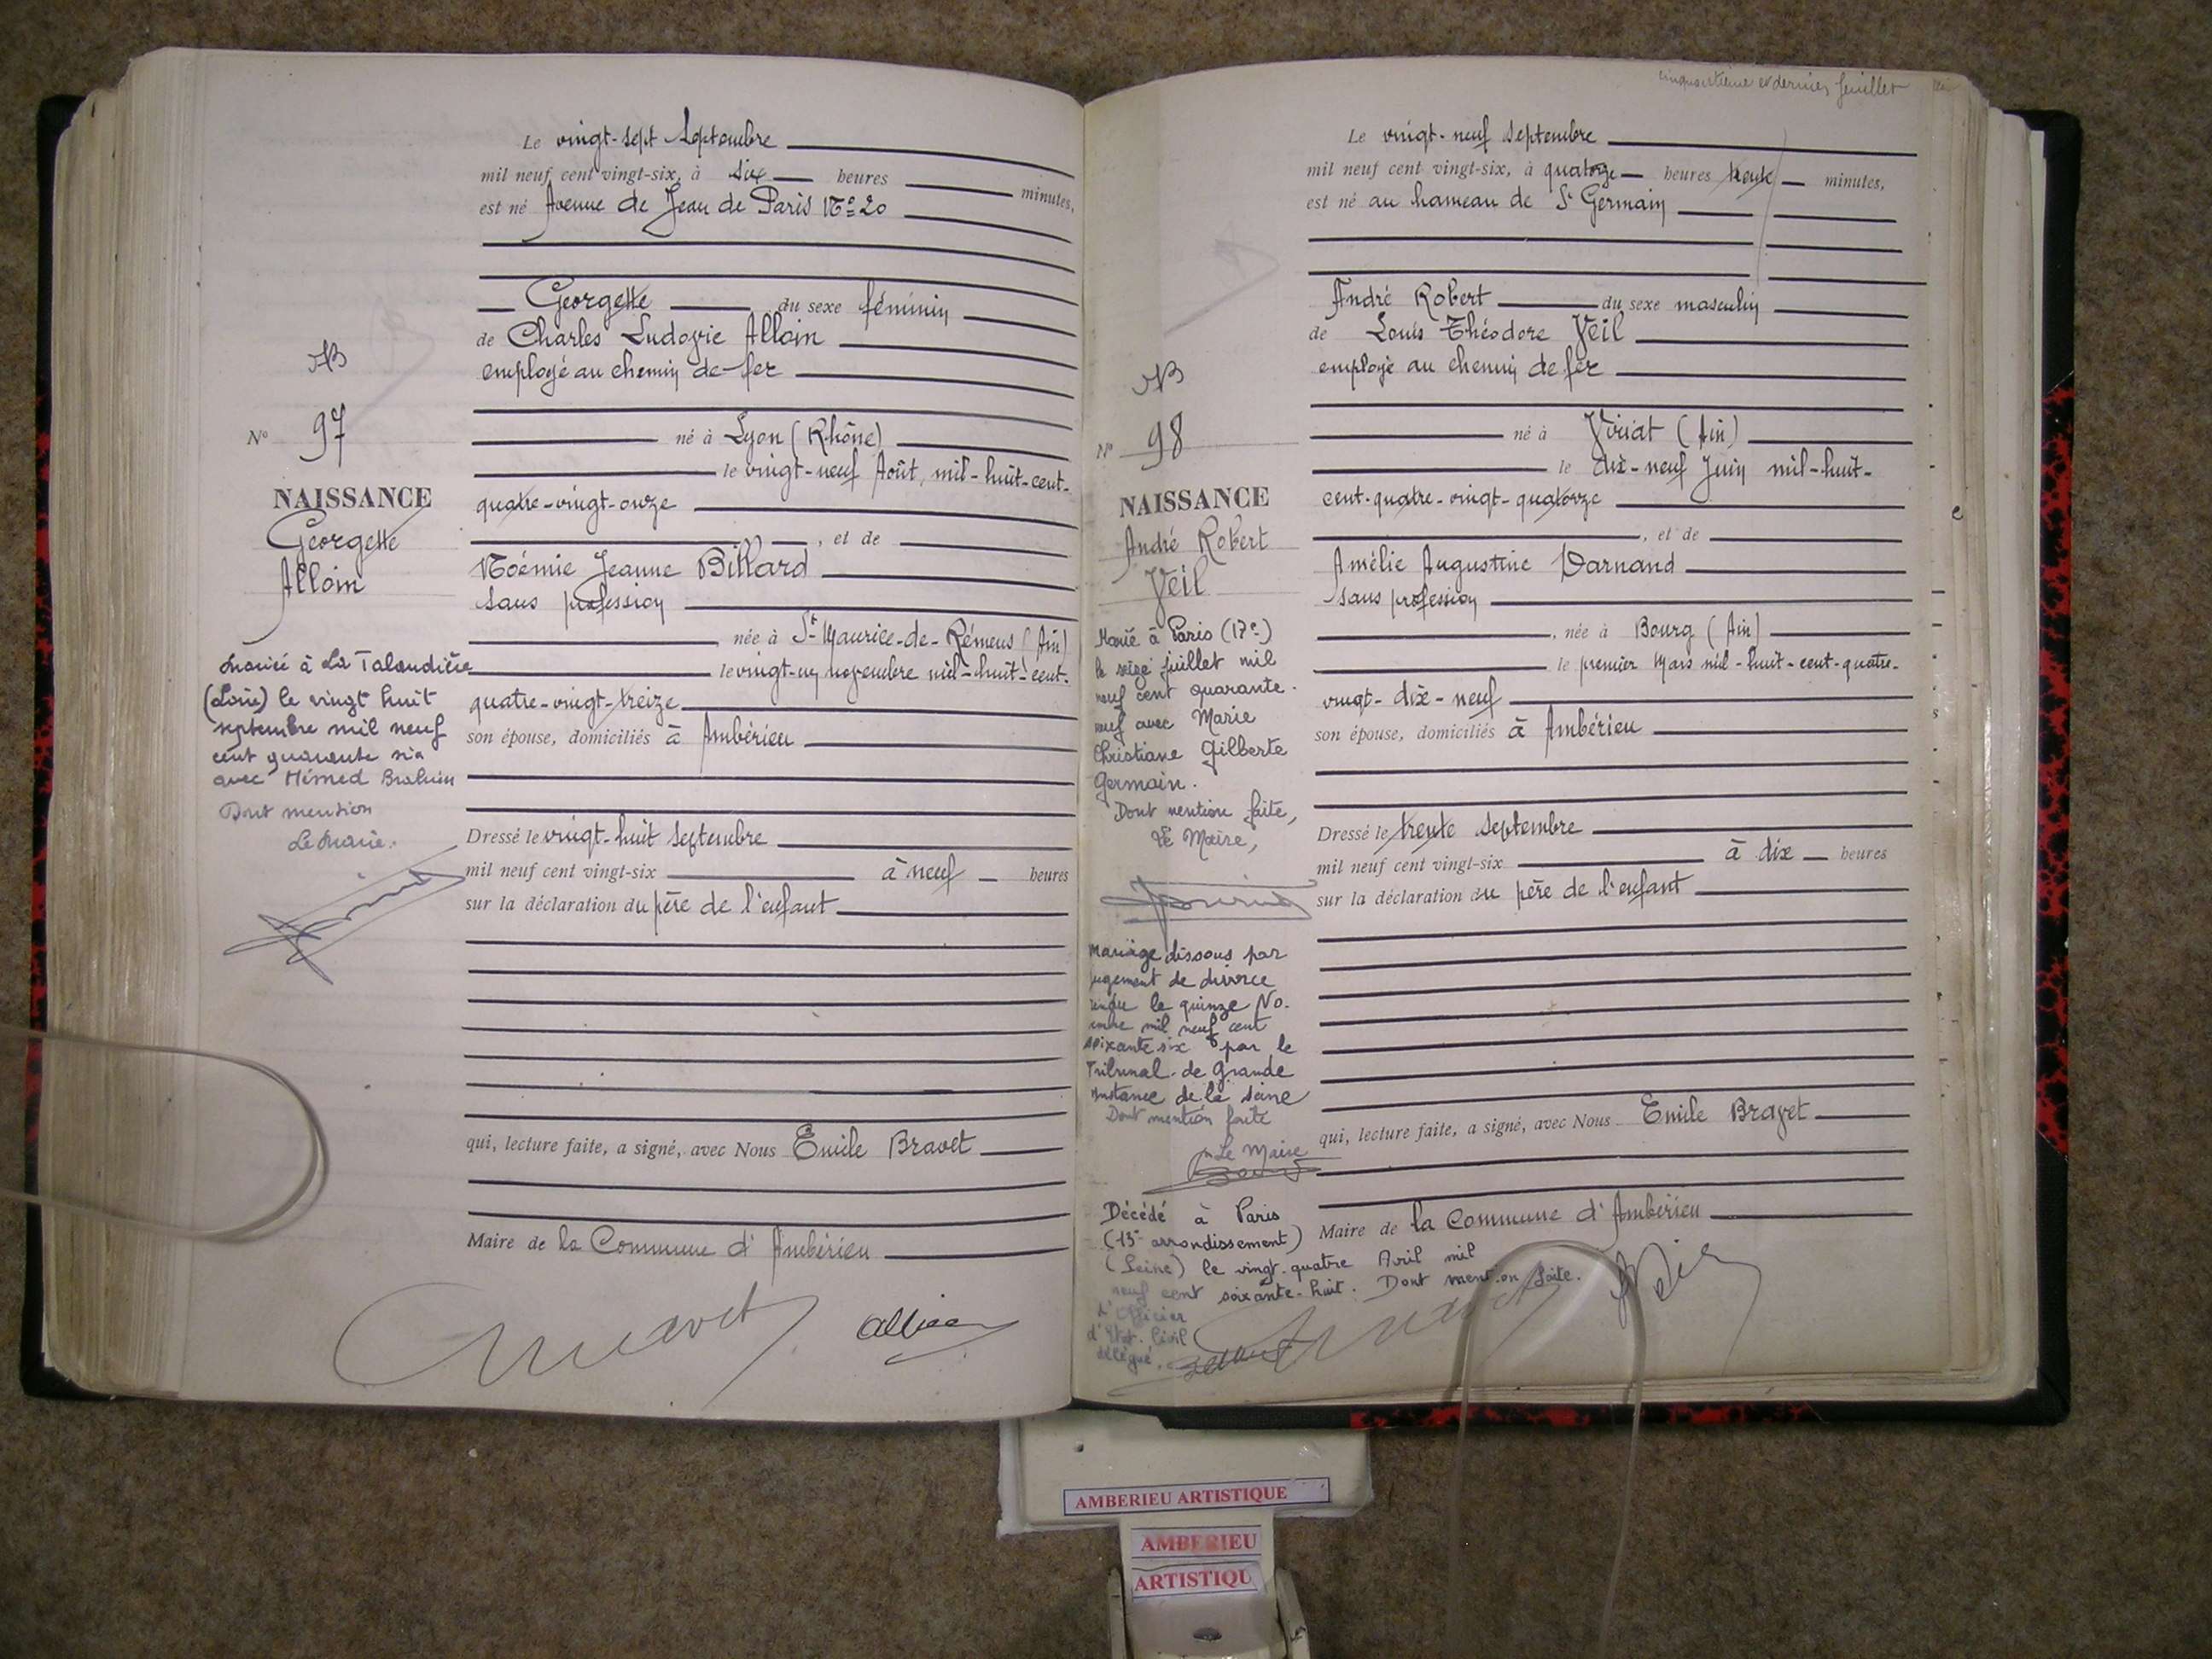 Le vingt-sept Septembre
mil neuf cent vingt-six, à six heures minutes,
est né Avenue de Jean de Paris N° 20
Georgette du sexe féminin
de Charles Ludovic Alloin
employé au chemin de fer
né à Lyon (Rhône)
le vingt-neuf Août, mil-huit-cent-
quatre-vingt-onze
, et de
Noémie Jeanne Billard
sans profession
née à St Maurice-de-Rémens (Ain)
le vingt-un novembre mil-huit-cent-
quatre-vingt-treize
son épouse, domiciliés à Ambérieu
Dressé le vingt-huit septembre
mil neuf cent vingt-six à neuf heures
sur la déclaration du père de l'enfant
qui, lecture faite, a signé, avec Nous Emile Bravet
Maire de la Commune d'Ambérieu
Bravet Alloin
N° 97
NAISSANCE
Georgette
Alloin
Mariée à La Talaudière
(Loire) le vingt huit
septembre mil neuf
cent quarante six
avec Himed
Dont mention
Le Maire.
cinquantième et dernier feuillet
Le vingt-neuf septembre
mil neuf cent vingt-six, à quatorze heures trente minutes,
est né au hameau de St Germain
André Robert du sexe masculin
de Louis Théodore Veil
employé au chemin de fer
né à Viriat (Ain)
le dix-neuf Juin mil-huit-
cent-quatre-vingt-quatorze
, et de
Amélie Augustine Darnand
sans profession
, née à Bourg (Ain)
le premier Mars mil-huit-cent-quatre-
vingt-dix-neuf
son épouse, domiciliés à Ambérieu
Dressé le trente septembre
mil neuf cent vingt-six à dix heures
sur la déclaration du père de l'enfant
qui, lecture faite, a signé, avec Nous Emile Bravet
Maire de la Commune d'Ambérieu
N° 98
NAISSANCE
André Robert
Veil
Marié à Paris (17e)
le seize juillet mil
neuf cent quarante-
neuf avec Marie
Christiane Gilberte
Germain.
Dont mention faite,
Le Maire,
Mariage dissous par
jugement de divorce
rendu le quinze No-
embre mil neuf cent
soixante six par le
Tribunal de Grande
Instance de la Seine
Dont mention faite
Le Maire
Décédé à Paris
(13e arrondissement)
(Seine) le vingt-quatre Avril mil
neuf cent soixante-huit. Dont mention faite.
L'Officier
d'Etat-Civil
délégué,
AMBERIEU ARTISTIQUE
AMBERIEU
ARTISTIQU